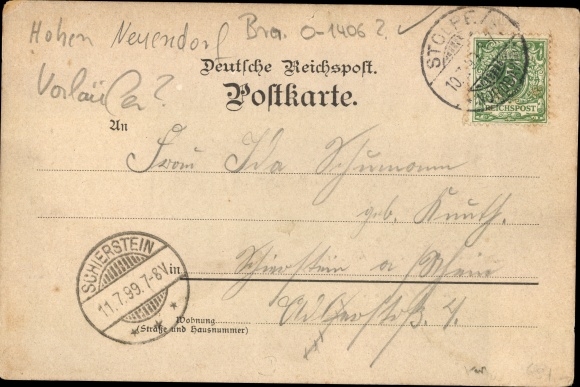 Hohen Neuendorf Bra. O-1406 ?
Vorläufer ?
STOLPE
10.7.
REICHSPOST
Deutsche Reichspost.
Postkarte.
An
Frau Ida Schumann
geb. Knuth.
SCHIERSTEIN
11.7.99. 7-8V.
in Schierstein a Rhein
Wohnung
(Straße und Hausnummer)
4.